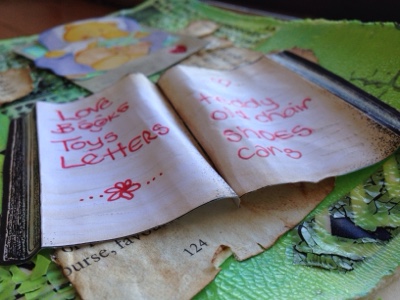 Love
Books
Toys
Letters
teddy
old chair
shoes
cars
124
ourse, favo